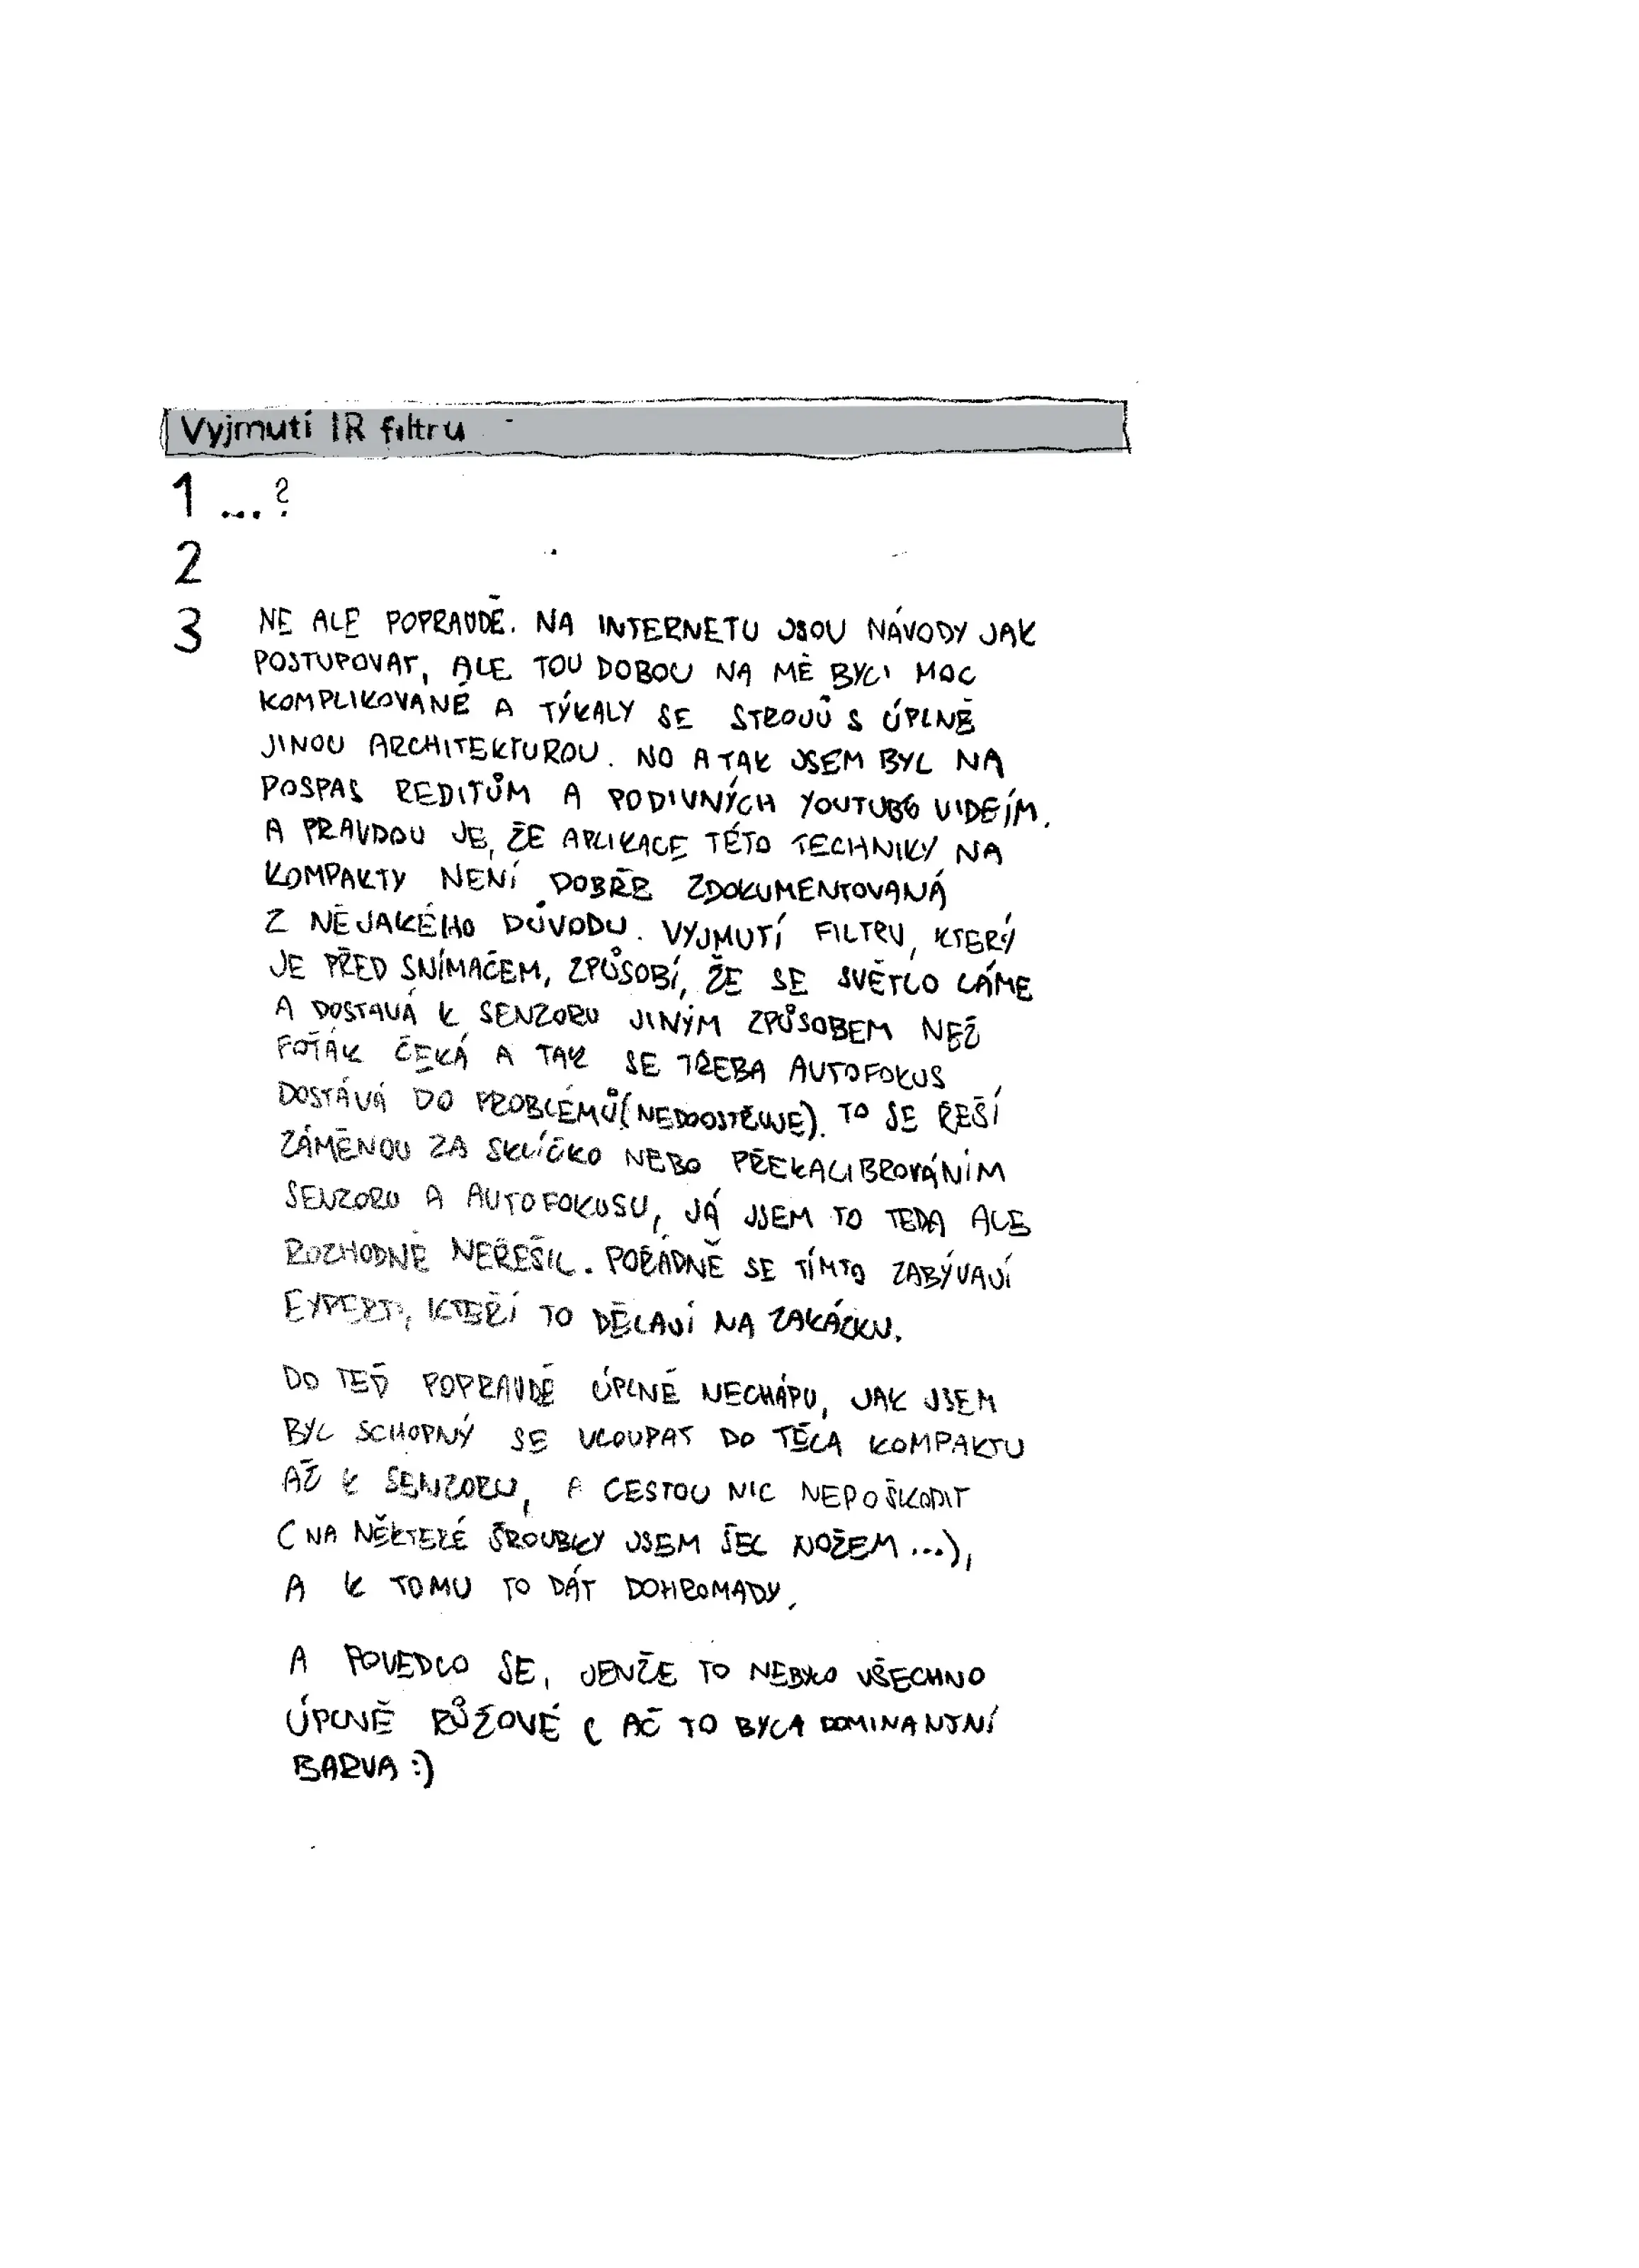 Vyjmutí IR filtru
1 ...?
2
3 NE ALE POPRAVDĚ. NA INTERNETU JSOU NÁVODY JAK
POSTUPOVAT, ALE TOU DOBOU NA MĚ BYLI MOC
KOMPLIKOVANÉ A TÝKALY SE STROJŮ S ÚPLNĚ
JINOU ARCHITEKTUROU. NO A TAK JSEM BYL NA
POSPAS REDITŮM A PODIVNÝCH YOUTUBE VIDEÍM.
A PRAVDOU JE, ŽE APLIKACE TÉTO TECHNIKY NA
KOMPAKTY NENÍ DOBŘE ZDOKUMENTOVANÁ
Z NĚJAKÉHO DŮVODU. VYJMUTÍ FILTRU, KTERÝ
JE PŘED SNÍMAČEM, ZPŮSOBÍ, ŽE SE SVĚTLO LÁME
A DOSTAVÁ K SENZORU JINÝM ZPŮSOBEM NEŽ
FOŤÁK ČEKÁ A TAK SE TŘEBA AUTOFOKUS
DOSTÁVÁ DO PROBLÉMŮ (NEDOOSTŘUJE). TO SE ŘEŠÍ
ZÁMĚNOU ZA SKLÍČKO NEBO PŘEKALIBROVÁNÍM
SENZORU A AUTOFOKUSU, JÁ JSEM TO TEDA ALE
ROZHODNĚ NEŘEŠIL. POŘÁDNĚ SE TÍMTO ZABÝVAJÍ
EXPERTI, KTEŘÍ TO DĚLAJÍ NA ZAKÁZKU.
DO TEĎ POPRAVDĚ ÚPLNĚ NECHÁPU, JAK JSEM
BYL SCHOPNÝ SE VLOUPAT DO TĚLA KOMPAKTU
AŽ K SENZORU, A CESTOU NIC NEPOŠKODIT
(NA NĚKTERÉ ŠROUBKY JSEM ŠEL NOŽEM ...),
A K TOMU TO DÁT DOHROMADY.
A POVEDLO SE, JENŽE TO NEBYLO VŠECHNO
ÚPLNĚ RŮŽOVÉ ( AČ TO BYLA DOMINANTNÍ
BARVA :)